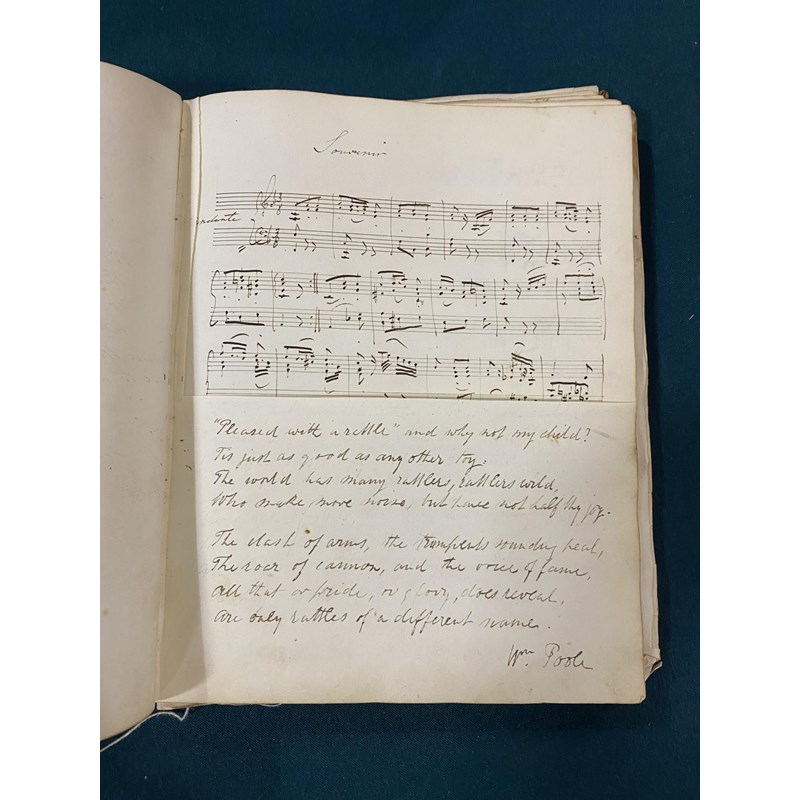 Souvenir
Andante
"Pleased with a rattle" and why not my child?
Tis just as good as any other toy.
The world has many rattlers, rattlers wild,
Who make more noise, but have not half thy joy.
The clash of arms, the trumpets sounding peal,
The roar of cannon, and the voice of fame,
All that or pride, or glory, does reveal,
Are only rattles of a different name.
Wm. Poole